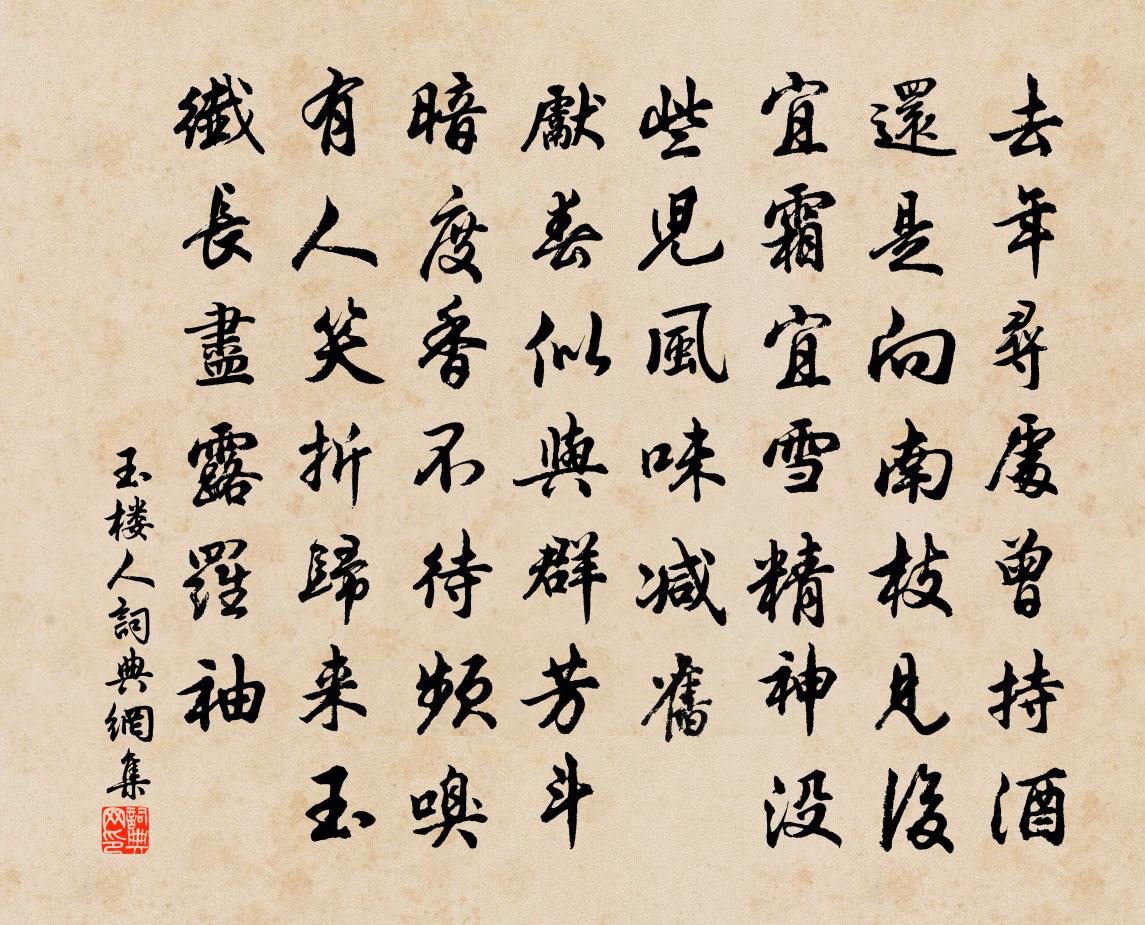 去年尋處曾持酒
還是向南枝見後
宜霜宜雪精神没
些兒風味減舊
獻春似與群芳斗
暗度香不待頻嗅
有人笑折歸来玉
纖長盡露羅袖
玉楼人詞典網集
詞典网印